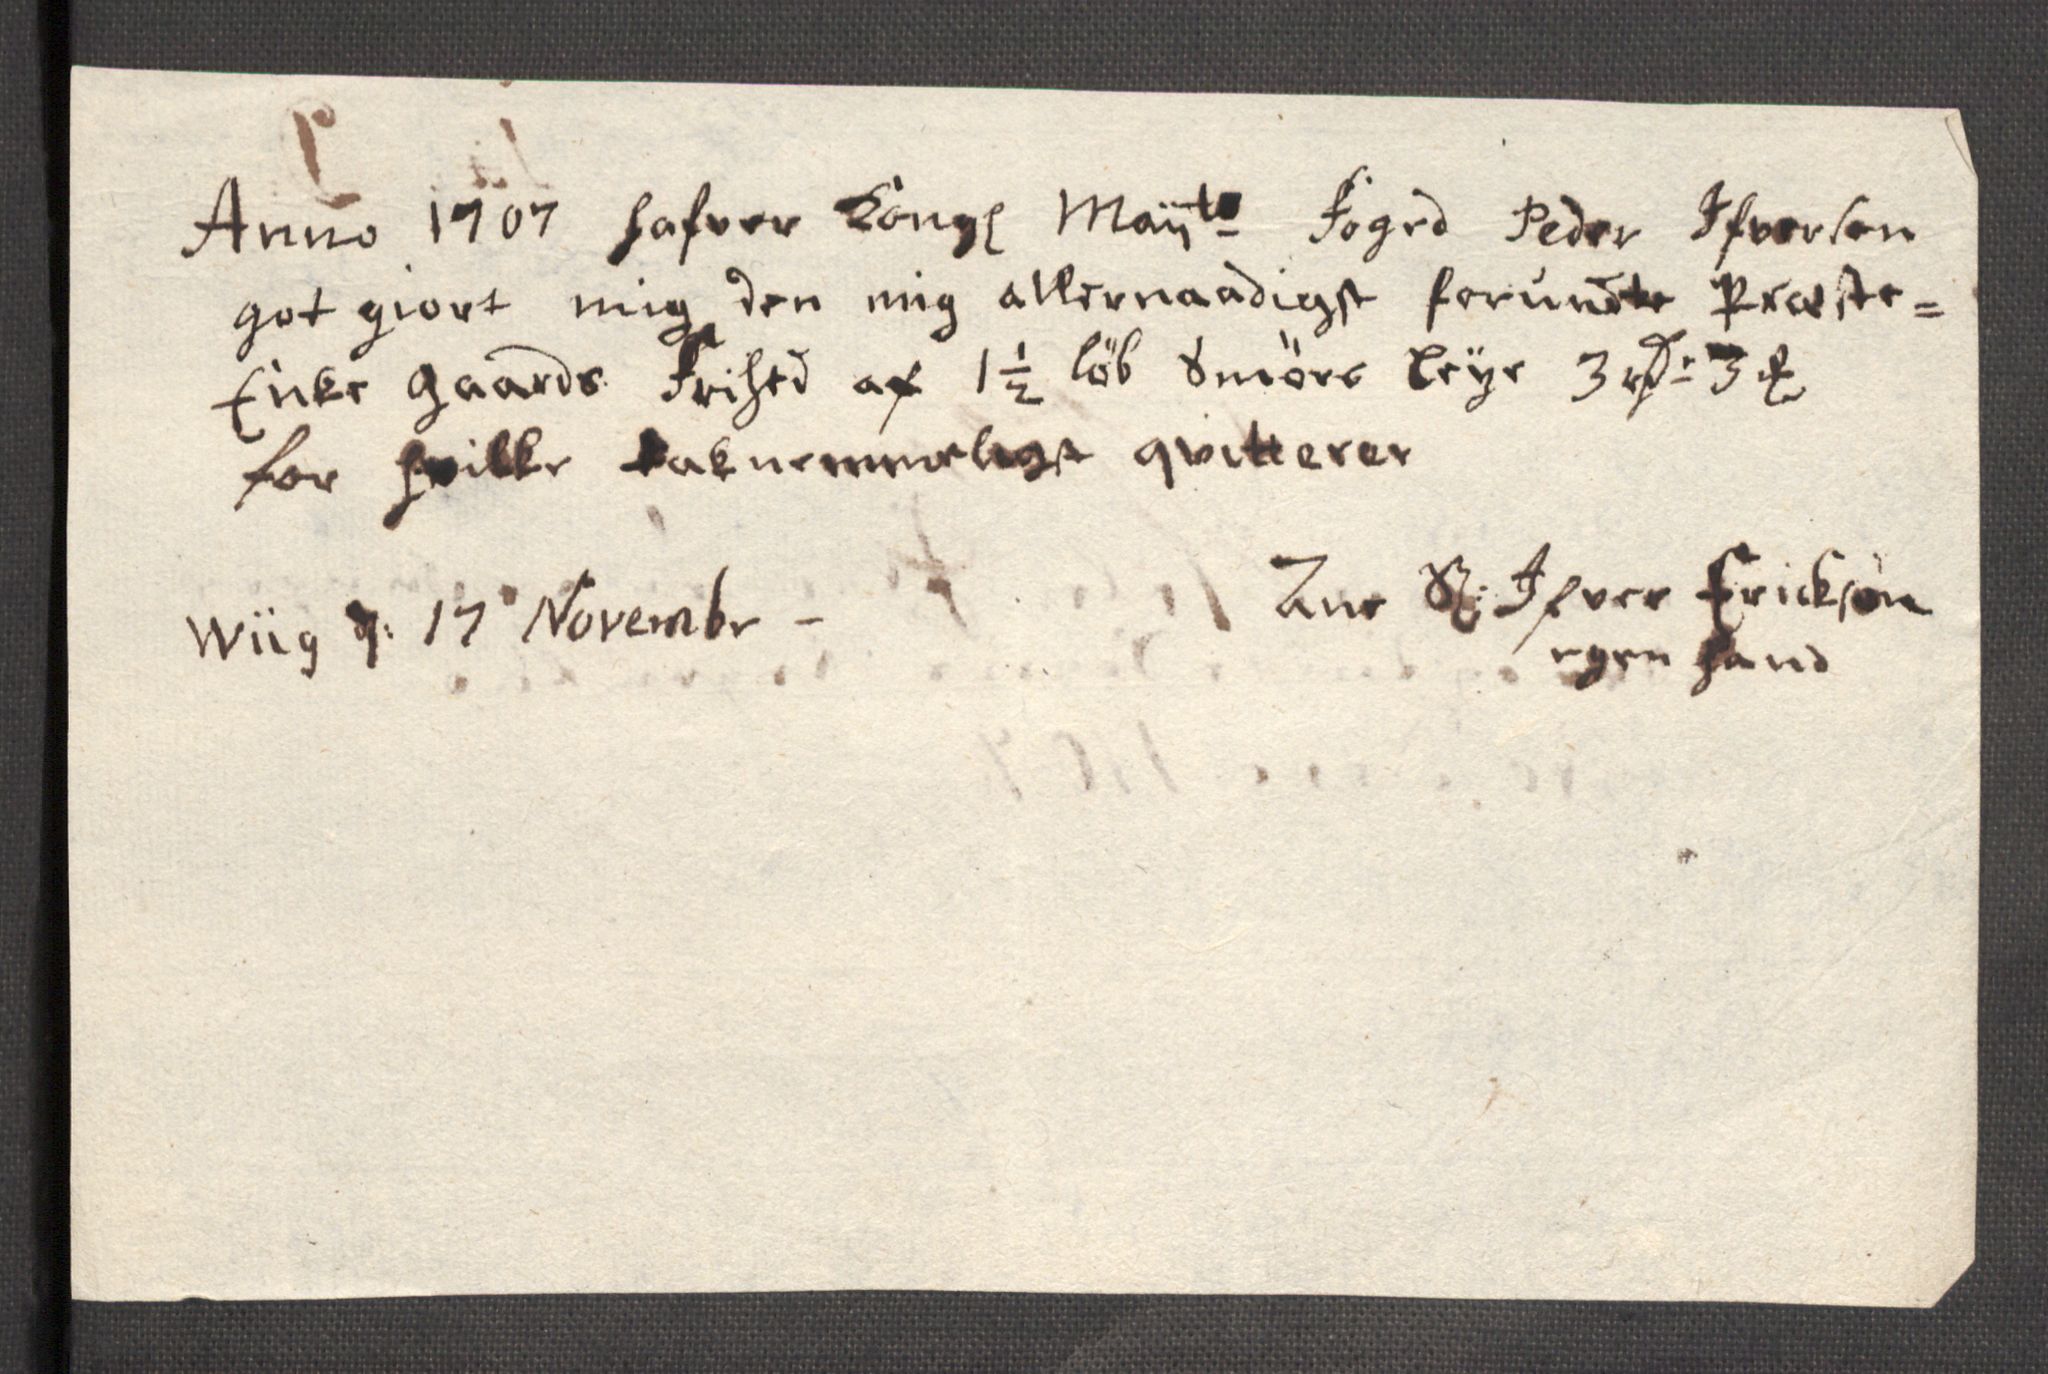 Anno 1707 hafver Kongl Maÿts Foged Peder Ifversen
got giort mig den mig allernaadigst forundte Præste=
Enke gaards Frihed af 1½ löb Smörs leÿe 3 rdr 3 ₰
for hvilke taknemmeligst qvitterer
Wiig d: 17 Novembr –
Sl: Ifver Ericksøn
egen hand